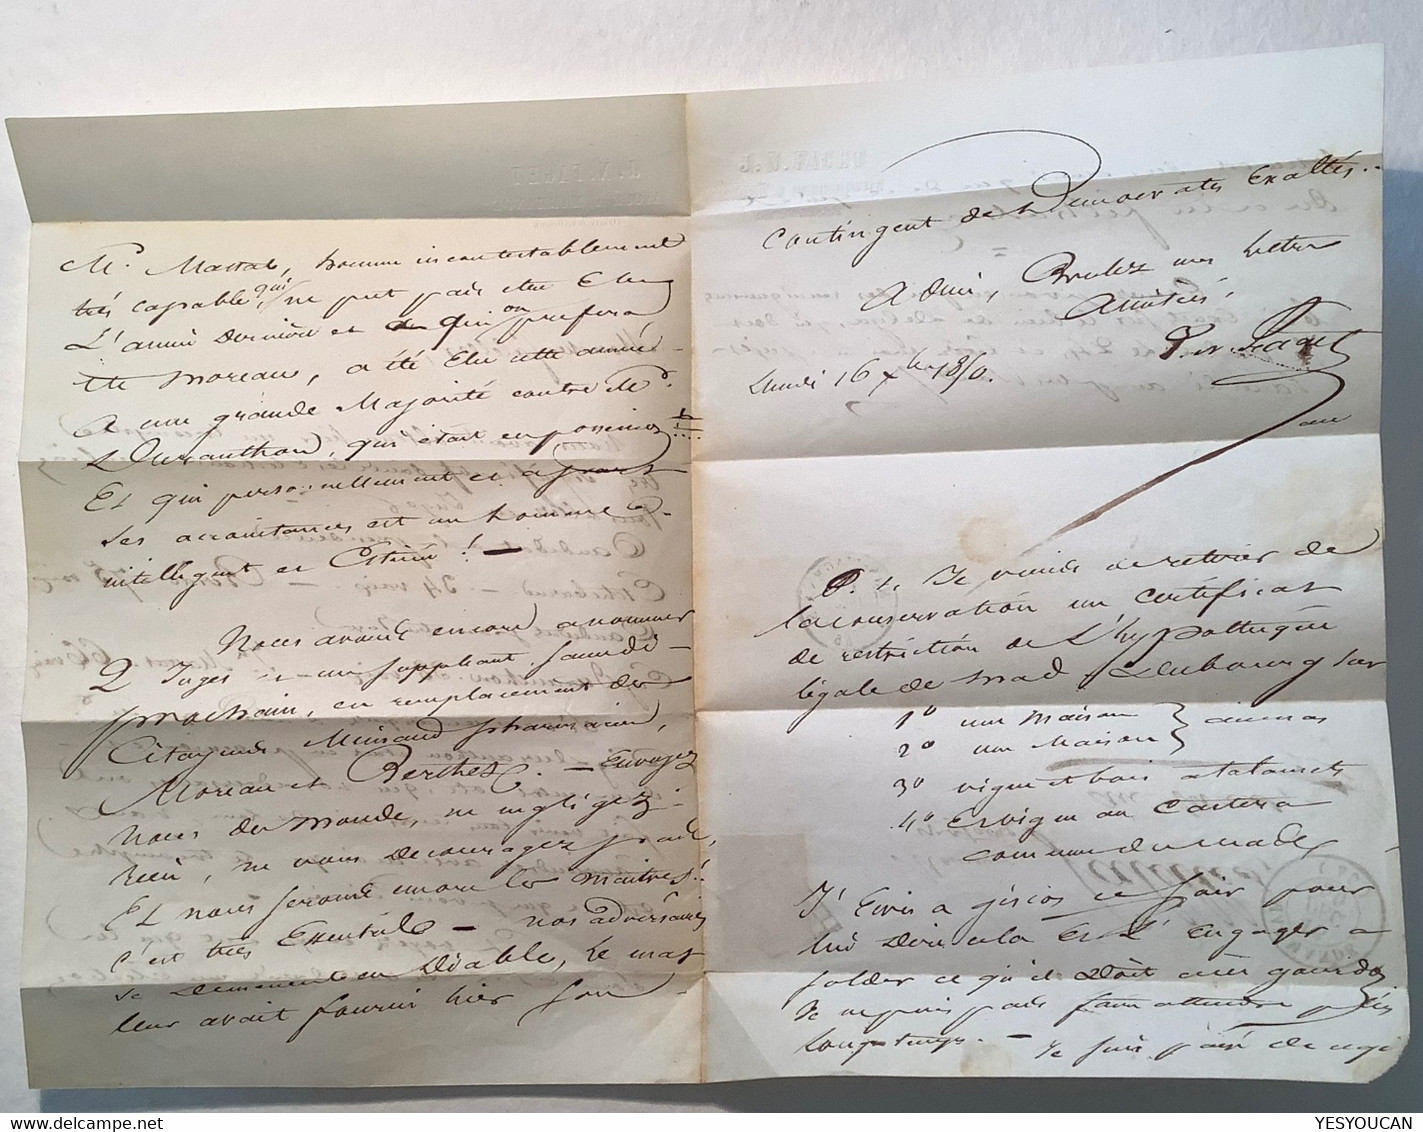 Mr. Massab, homme incontestablement
très capable, qui ne put pas être Elu
L'année dernière et qu'on préféra
Moreau, a été Elu cette année
a une grande Majorité contre Mr.
Duranthon, qui était en possession
Et qui personnellement et
ses accointances est un homme
intelligent et Estimé ! —
Nous avons encore a nommer
2 Juges et un suppléant Samedi
prochain, en remplacement des
Citoyens pharmacien,
Moreau et Berthez. — Envoyez
nous du monde, ne négligez
rien, ne vous découragez pas,
Et nous serons encore les maîtres !
C'est très Essentiel — nos adversaires
se démènent en Diable, le
leur avait fourni hier son
contingent de Démocrates Exaltés..
Adieu, Brulez mes lettres
Amitiés,
Lundi 16 Xbre 1850.
P. S. Je viens de retirer de
la conservation un certificat
de restriction de L'hypothèque
légale de Mad. Dubourg sur
1° une Maison
2° une Maison
3° vigne et bois a
4° Et vigne au
commune
J'Ecris a ce soir pour
lui dire cela Et L'Engager a
solder ce qu'il doit
Je ne puis pas faire attendre plus
longtemps. — Je suis
YESYOUCAN